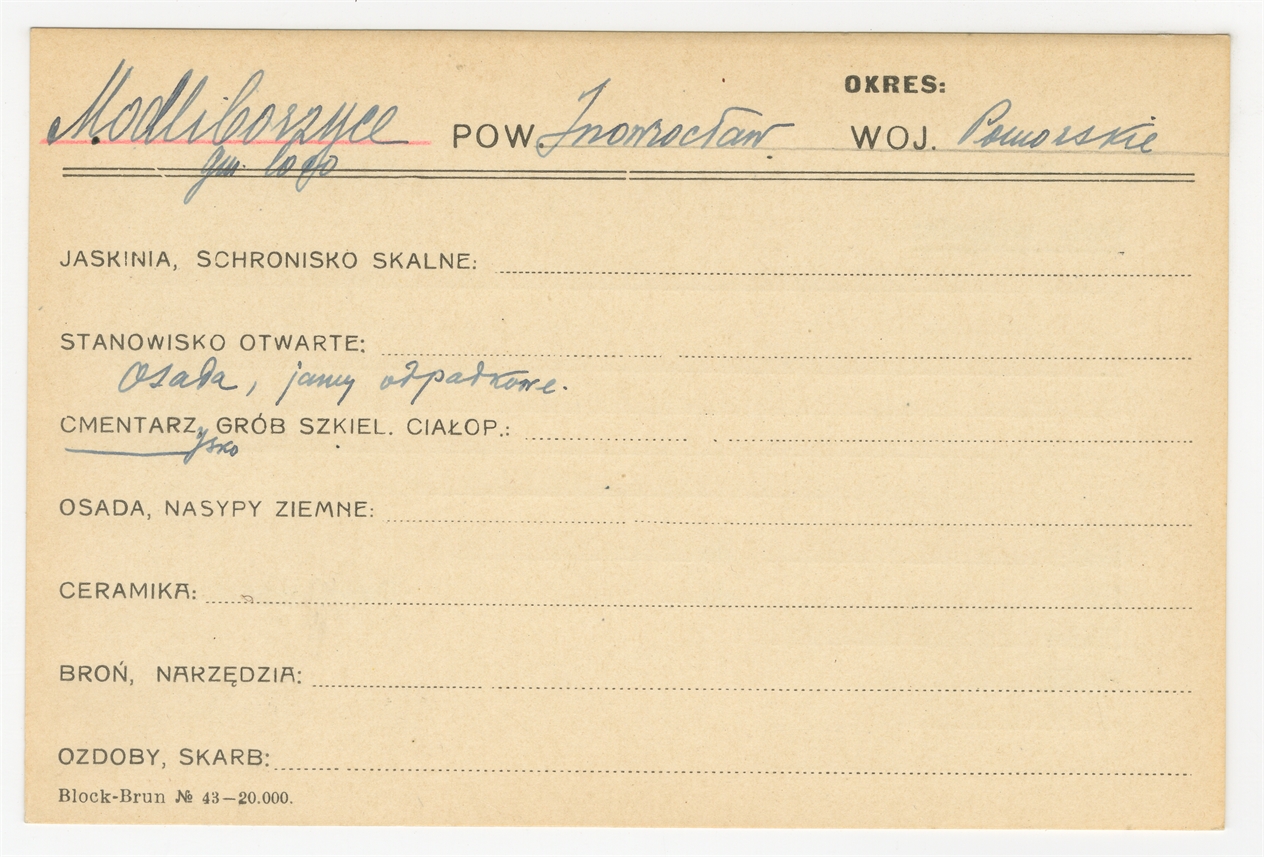 OKRES:
Modliborzyce POW. Inowrocław WOJ. Pomorskie
gm. loco
JASKINIA, SCHRONISKO SKALNE:
STANOWISKO OTWARTE:
Osada, jamy odpadkowe.
CMENTARZ, GRÓB SZKIEL. CIAŁOP.:
ysko
OSADA, NASYPY ZIEMNE:
CERAMIKA:
BROŃ, NARZĘDZIA:
OZDOBY, SKARB:
Block-Brun № 43—20.000.